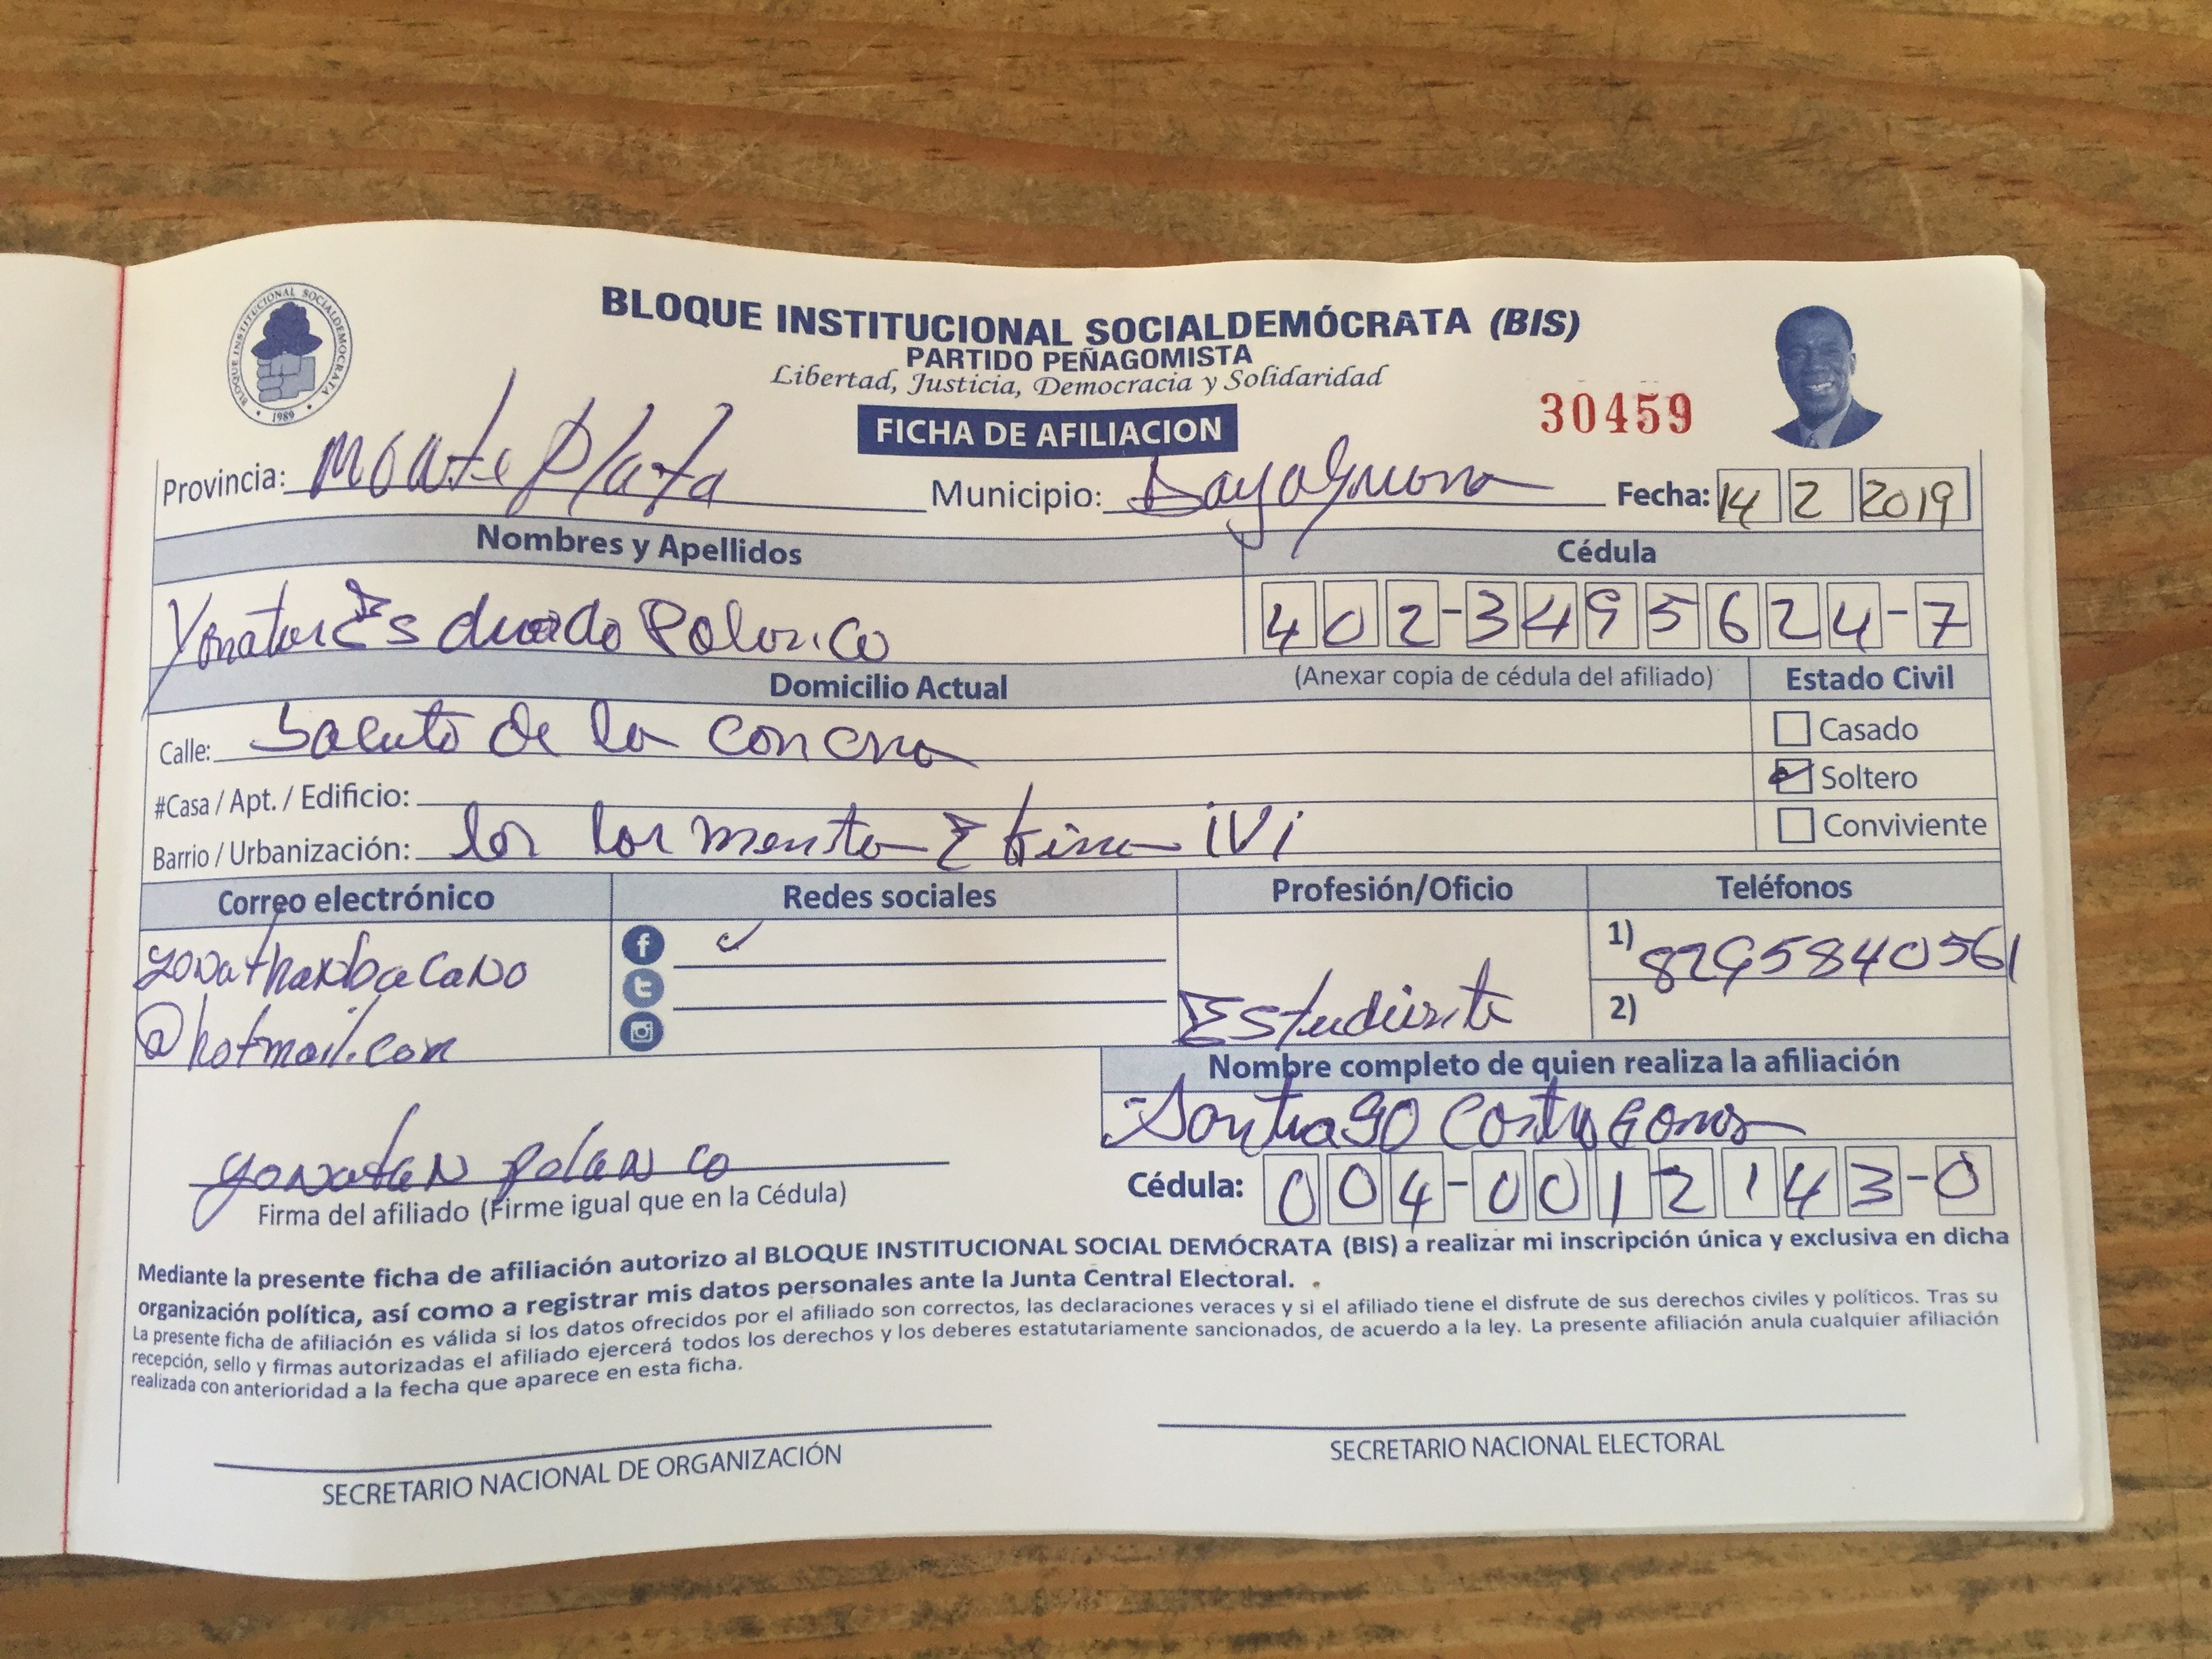 BLOQUE INSTITUCIONAL SOCIALDEMÓCRATA (BIS)
PARTIDO PEÑAGOMISTA
Libertad, Justicia, Democracia y Solidaridad
BLOQUE INSTITUCIONAL SOCIALDEMOCRATA
1989
FICHA DE AFILIACION
30459
Provincia: Monte Plata Municipio: Bayaguana Fecha: 14 2 2019
Nombres y Apellidos Cédula
Yonatan Eduardo Polanco 402-3495624-7
Domicilio Actual (Anexar copia de cédula del afiliado) Estado Civil
Calle: de la Casado
#Casa / Apt. / Edificio: Soltero
Barrio / Urbanización: Conviviente
Correo electrónico Redes sociales Profesión/Oficio Teléfonos
yonathanbacano 1) 8295840561
@hotmail.com Estudiante 2)
Nombre completo de quien realiza la afiliación
Santiago
yonatan polanco Cédula: 004-0012143-0
Firma del afiliado (Firme igual que en la Cédula)
Mediante la presente ficha de afiliación autorizo al BLOQUE INSTITUCIONAL SOCIAL DEMÓCRATA (BIS) a realizar mi inscripción única y exclusiva en dicha
organización política, así como a registrar mis datos personales ante la Junta Central Electoral.
La presente ficha de afiliación es válida si los datos ofrecidos por el afiliado son correctos, las declaraciones veraces y si el afiliado tiene el disfrute de sus derechos civiles y políticos. Tras su
recepción, sello y firmas autorizadas el afiliado ejercerá todos los derechos y los deberes estatutariamente sancionados, de acuerdo a la ley. La presente afiliación anula cualquier afiliación
realizada con anterioridad a la fecha que aparece en esta ficha.
SECRETARIO NACIONAL DE ORGANIZACIÓN SECRETARIO NACIONAL ELECTORAL